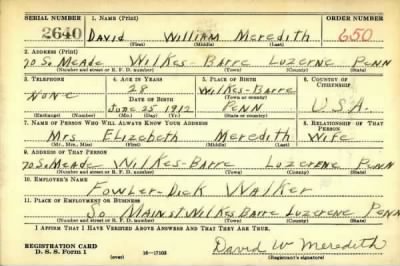 SERIAL NUMBER 1. NAME (Print) ORDER NUMBER
2640 David William Meredith 650
(First) (Middle) (Last)
2. ADDRESS (Print)
70 So. Meade Wilkes-Barre Luzerne Penn
(Number and street or R. F. D. number) (Town) (County) (State)
3. TELEPHONE 4. AGE IN YEARS 5. PLACE OF BIRTH 6. COUNTRY OF CITIZENSHIP
28 Wilkes-Barre
None DATE OF BIRTH (Town or county)
June 25 1912 Penn U.S.A.
(Exchange) (Number) (Mo.) (Day) (Yr.) (State or country)
7. NAME OF PERSON WHO WILL ALWAYS KNOW YOUR ADDRESS 8. RELATIONSHIP OF THAT PERSON
Mrs Elizabeth Meredith Wife
(Mr., Mrs., Miss) (First) (Middle) (Last)
9. ADDRESS OF THAT PERSON
70 So. Meade Wilkes-Barre Luzerne Penn
(Number and street or R. F. D. number) (Town) (County) (State)
10. EMPLOYER'S NAME
Fowler-Dick Walker
11. PLACE OF EMPLOYMENT OR BUSINESS
So Main st Wilkes Barre Luzerene Penn
(Number and street or R. F. D. number) (Town) (County) (State)
I AFFIRM THAT I HAVE VERIFIED ABOVE ANSWERS AND THAT THEY ARE TRUE.
REGISTRATION CARD
D. S. S. Form 1 (over) 16—17105 David W Meredith
(Registrant's signature)